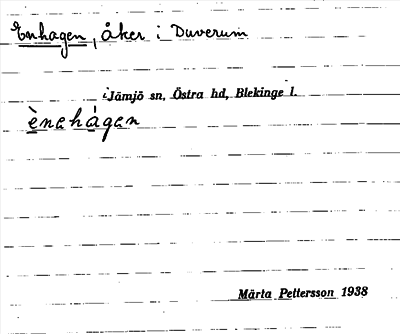 Enhagen, åker i Duverum
i Jämjö sn, Östra hd, Blekinge l.
ènahágan
Märta Pettersson 1938